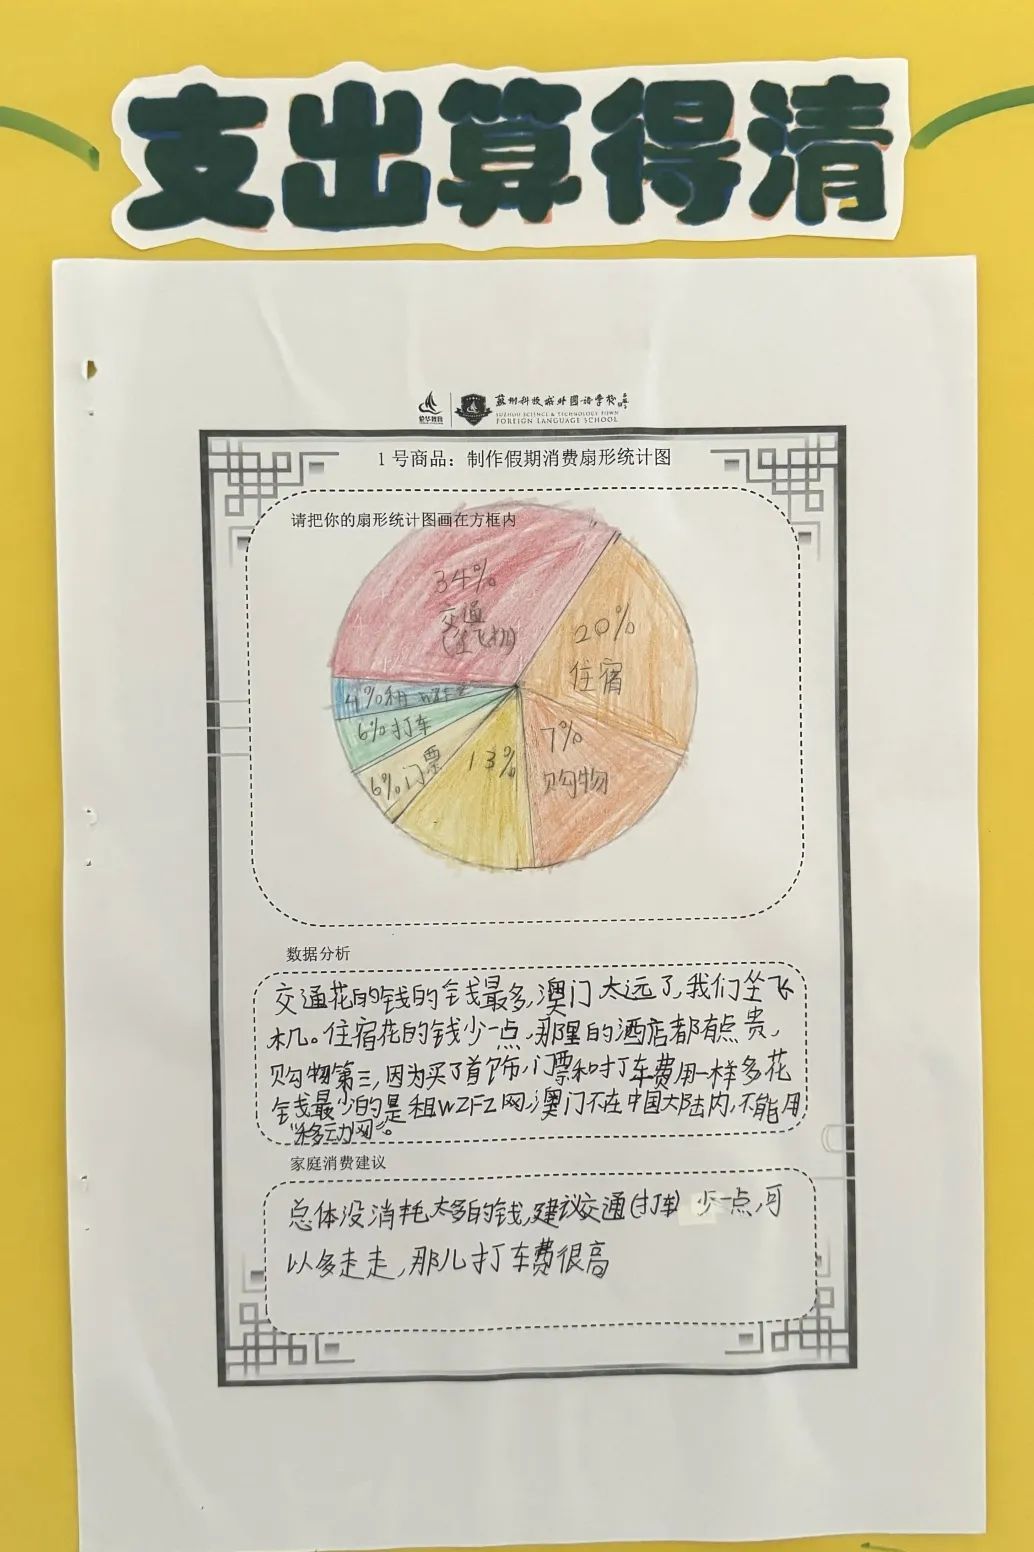 支出算得清
苏州科技城外国语学校
荣华教育
SUZHOU SCIENCE & TECHNOLOGY TOWN
FOREIGN LANGUAGE SCHOOL
1号商品：制作假期消费扇形统计图
请把你的扇形统计图画在方框内
34%
交通
(坐飞机)
20%
住宿
4%租
6%打车
6%门票
13%
7%
购物
数据分析
交通花的钱的钱最多,澳门太远了,我们坐飞
机。住宿花的钱少一点,那里的酒店都有点贵,
购物第三,因为买了首饰,门票和打车费用一样多花
钱最少的是租WZFZ网,澳门不在中国大陆内,不能用
“移动网”。
家庭消费建议
总体没消耗太多的钱,建议交通(打车)少一点,可
以多走走,那儿打车费很高